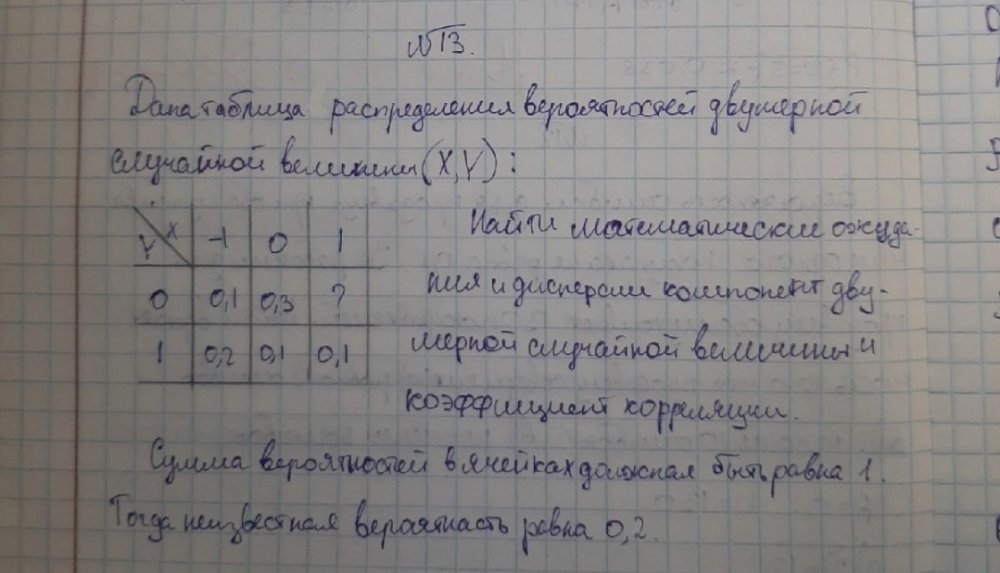 №13.
Дана таблица распределения вероятностей двумерной
случайной величины (X,Y):
Y X -1 0 1
Найти математические ожида-
0 0,1 0,3 ?
ния и дисперсии компонент дву-
1 0,2 0,1 0,1
мерной случайной величины и
коэффициент корреляции.
Сумма вероятностей в ячейках должная быть равна 1.
Тогда неизвестная вероятность равна 0,2.